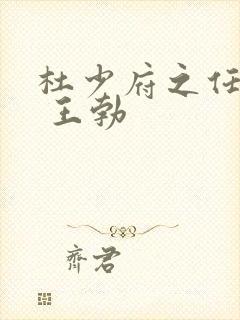 杜少府之任
王勃
齊君